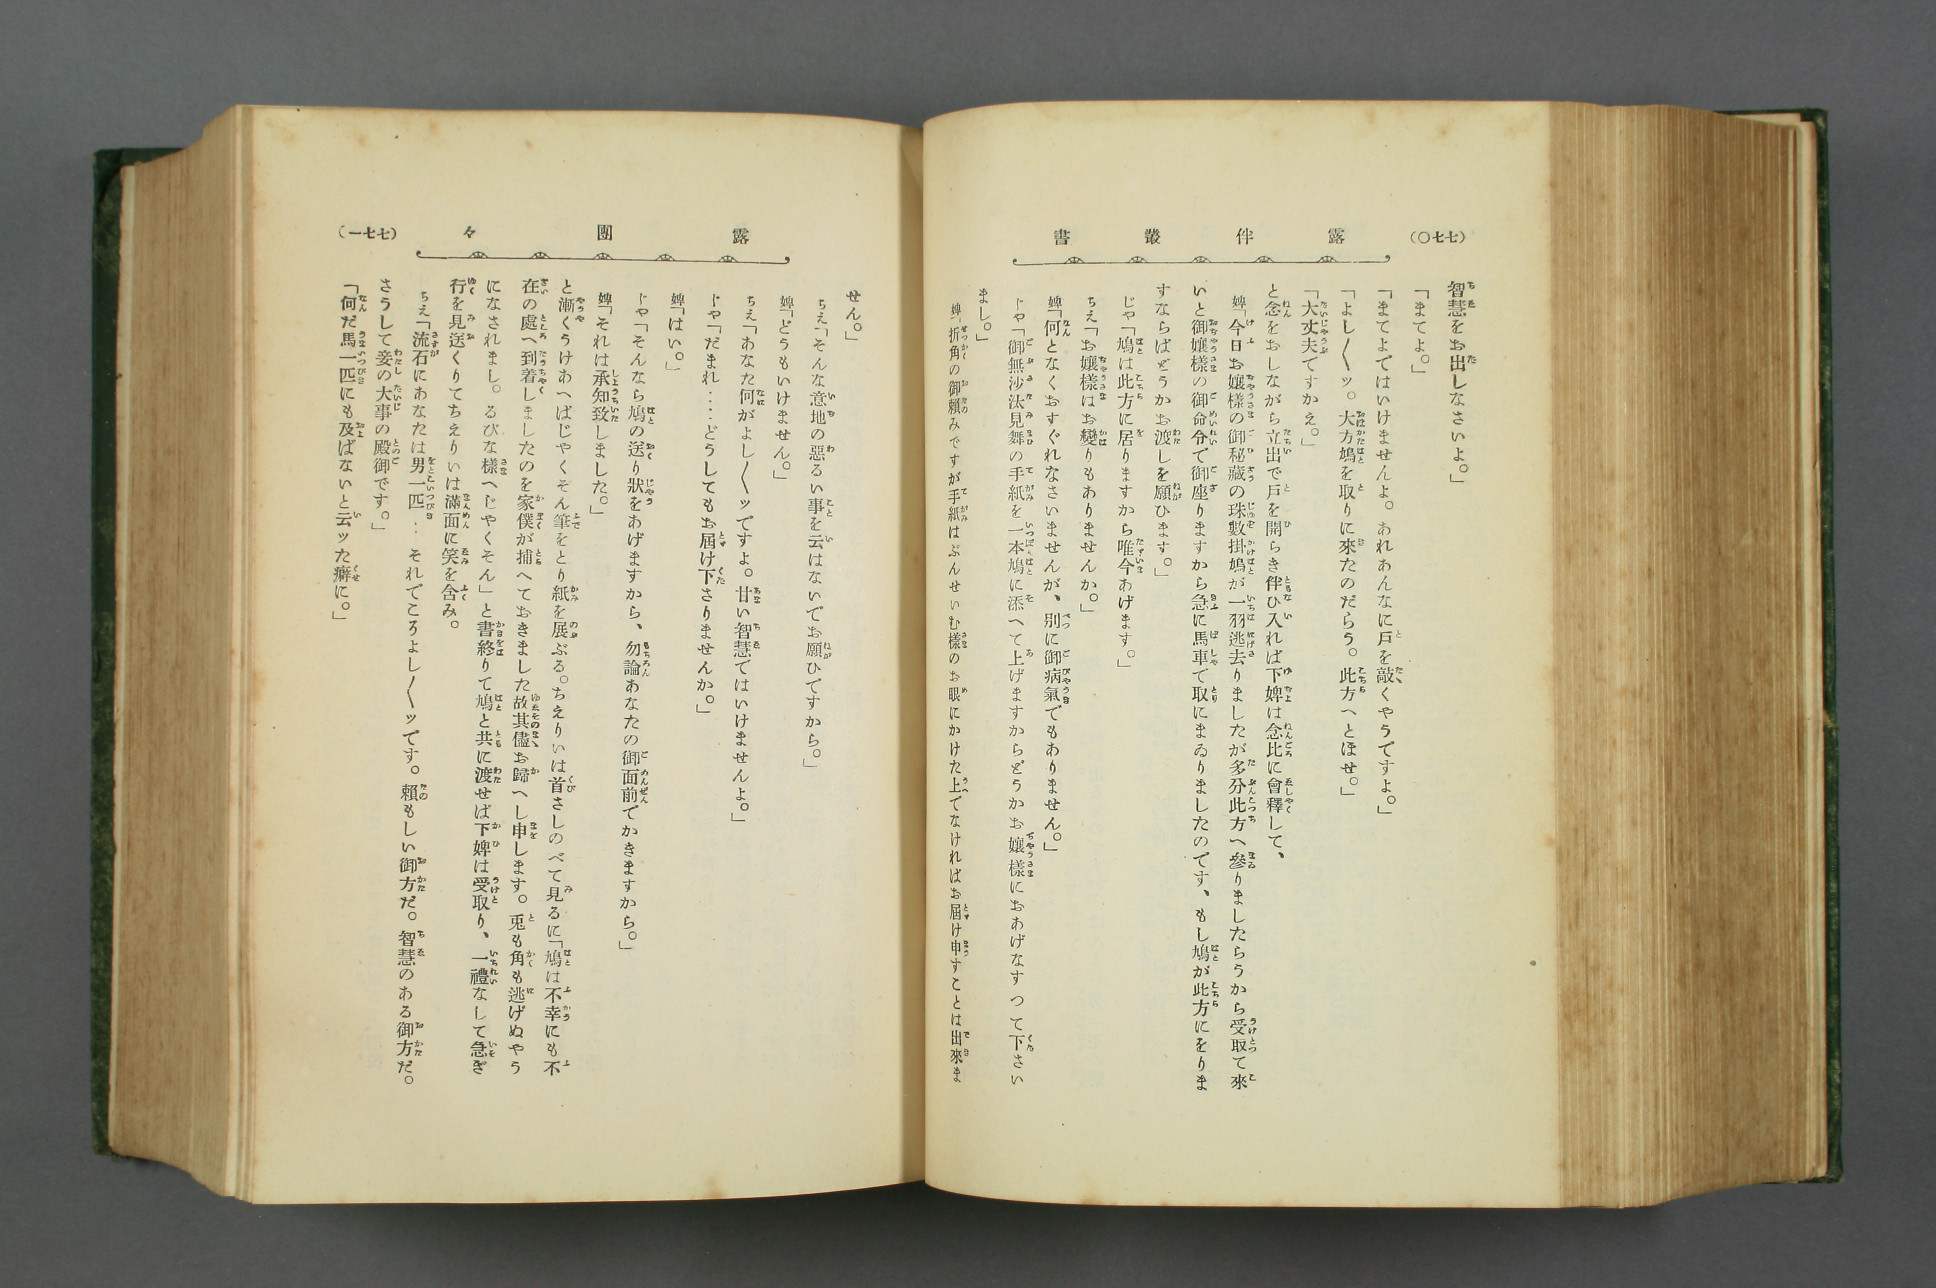 (七七〇)
露伴叢書
智慧をお出しなさいよ。」
「まてよ。」
「まてよではいけませんよ。あれあんなに戶を敲くやうですよ。」
「よし〱ッ。大方鳩を取りに來たのだらう。此方へとほせ。」
「大丈夫ですかえ。」
と念をおしながら立出で戶を開らき伴ひ入れば下婢は念比に會釋して、
婢「今日お孃樣の御秘藏の珠數掛鳩が一羽逃去りましたが多分此方へ參りましたらうから受取て來
いと御孃樣の御命令で御座りますから急に馬車で取にまゐりましたのです、もし鳩が此方にをりま
すならばどうかお渡しを願ひます。」
じや「鳩は此方に居りますから唯今あげます。」
ちえ「お孃樣はお變りもありませんか。」
婢「何となくおすぐれなさいませんが、別に御病氣でもありません。」
じや「御無沙汰見舞の手紙を一本鳩に添へて上げますからどうかお孃樣におあげなすつて下さい
まし。」
婢「折角の御賴みですが手紙はぶんせいむ樣のお眼にかけた上でなければお屆け申すことは出來ま
露團々
(七七一)
せん。」
ちえ「そんな意地の惡るい事を云はないでお願ひですから。」
婢「どうもいけません。」
ちえ「あなた何がよし〱ッですよ。甘い智慧ではいけませんよ。」
じや「だまれ‥‥どうしてもお屆け下さりませんか。」
婢「はい。」
じや「そんなら鳩の送り狀をあげますから、勿論あなたの御面前でかきますから。」
婢「それは承知致しました。」
と漸くうけあへばじやくそん筆をとり紙を展ぶる。ちえりいは首さしのべて見るに「鳩は不幸にも不
在の處へ到着しましたのを家僕が捕へておきました故其儘お歸へし申します。兎も角も逃げぬやう
になされまし。るびな樣へじやくそん」と書終りて鳩と共に渡せば下婢は受取り、一禮なして急ぎ
行を見送くりてちえりいは滿面に笑を含み。
ちえ「流石にあなたは男一匹‥それでころよし〱ッです。賴もしい御方だ。智慧のある御方だ。
さうして妾の大事の殿御です。」
「何だ馬一匹にも及ばないと云ッた癖に。」